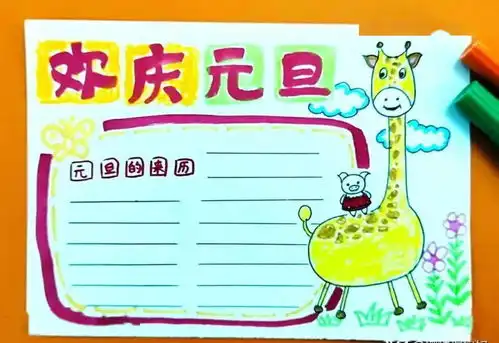 欢庆元旦
元旦的来历